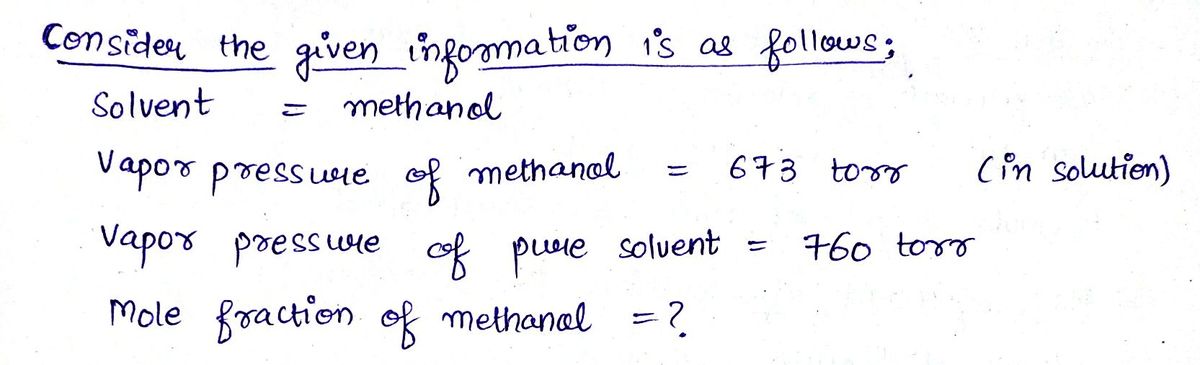 Consider the given information is as follows;
Solvent = methanol
Vapor pressure of methanol = 673 torr (in solution)
Vapor pressure of pure solvent = 760 torr
Mole fraction of methanol = ?